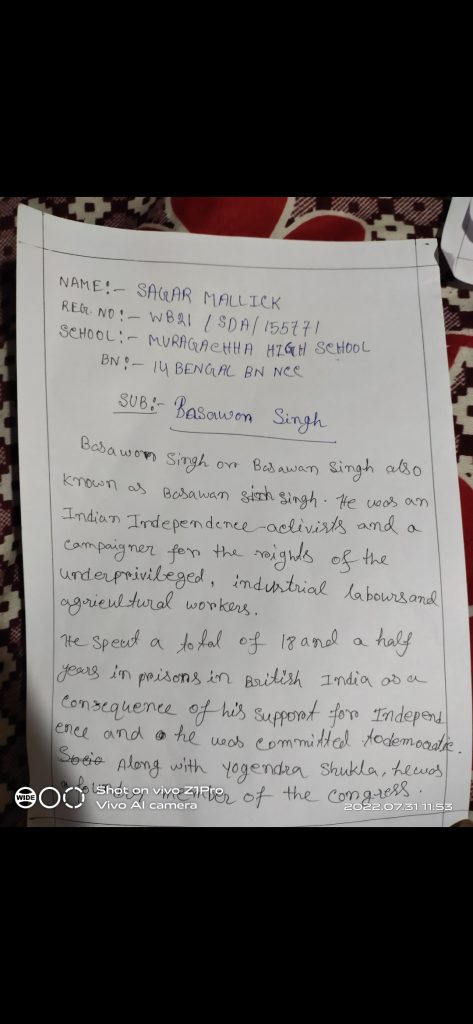 NAME:- SAGAR MALLICK
REG. NO:- WB21 / SDA/ 155771
SCHOOL:- MURAGACHHA HIGH SCHOOL
BN:- 14 BENGAL BN NCC
SUB:- Basawon Singh
Basawon Singh or Basawan Singh also
known as Basawan Singh. He was an
Indian Independence activists and a
campaigner for the rights of the
underprivileged, industrial labours and
agricultural workers.
He spent a total of 18 and a half
years in prisons in British India as a
consequence of his support for Independ
ence and he was committed to democratic.
Along with Yogendra Shukla, he was
a founding member of the congress.
WIDE
Shot on vivo Z1Pro
Vivo AI camera
2022.07.31 11:53